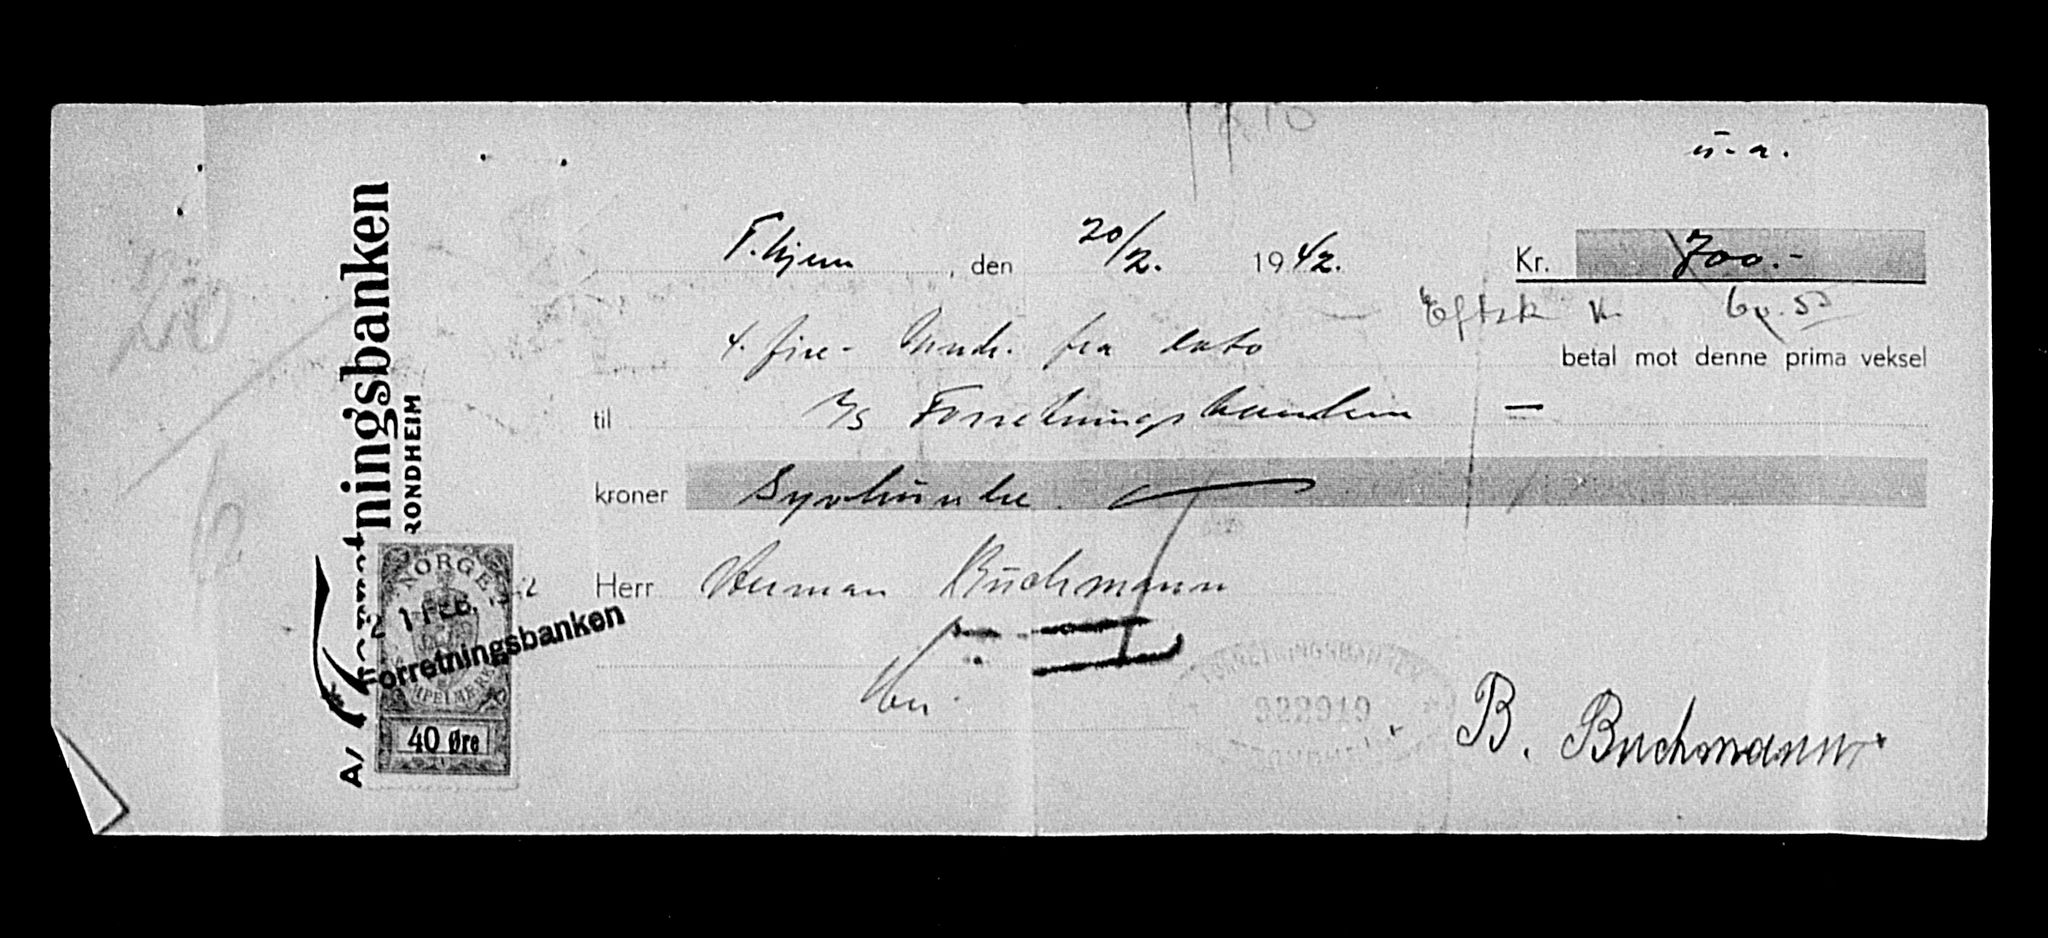 ü-a.
T.hjem, den 20/2. 1942. Kr. 700.-
Eftsk k.
4. fire - Mndr. fra dato betal mot denne prima veksel
til A/S Forretningsbanken —
kroner Syvhundre
Herr Herman Buchmann
Her.
B. Buchmann
A/S Forretningsbanken
TRONDHEIM
NORGE
21 FEB. 1942
Forretningsbanken
STEMPELMERKE
40 Øre
922919